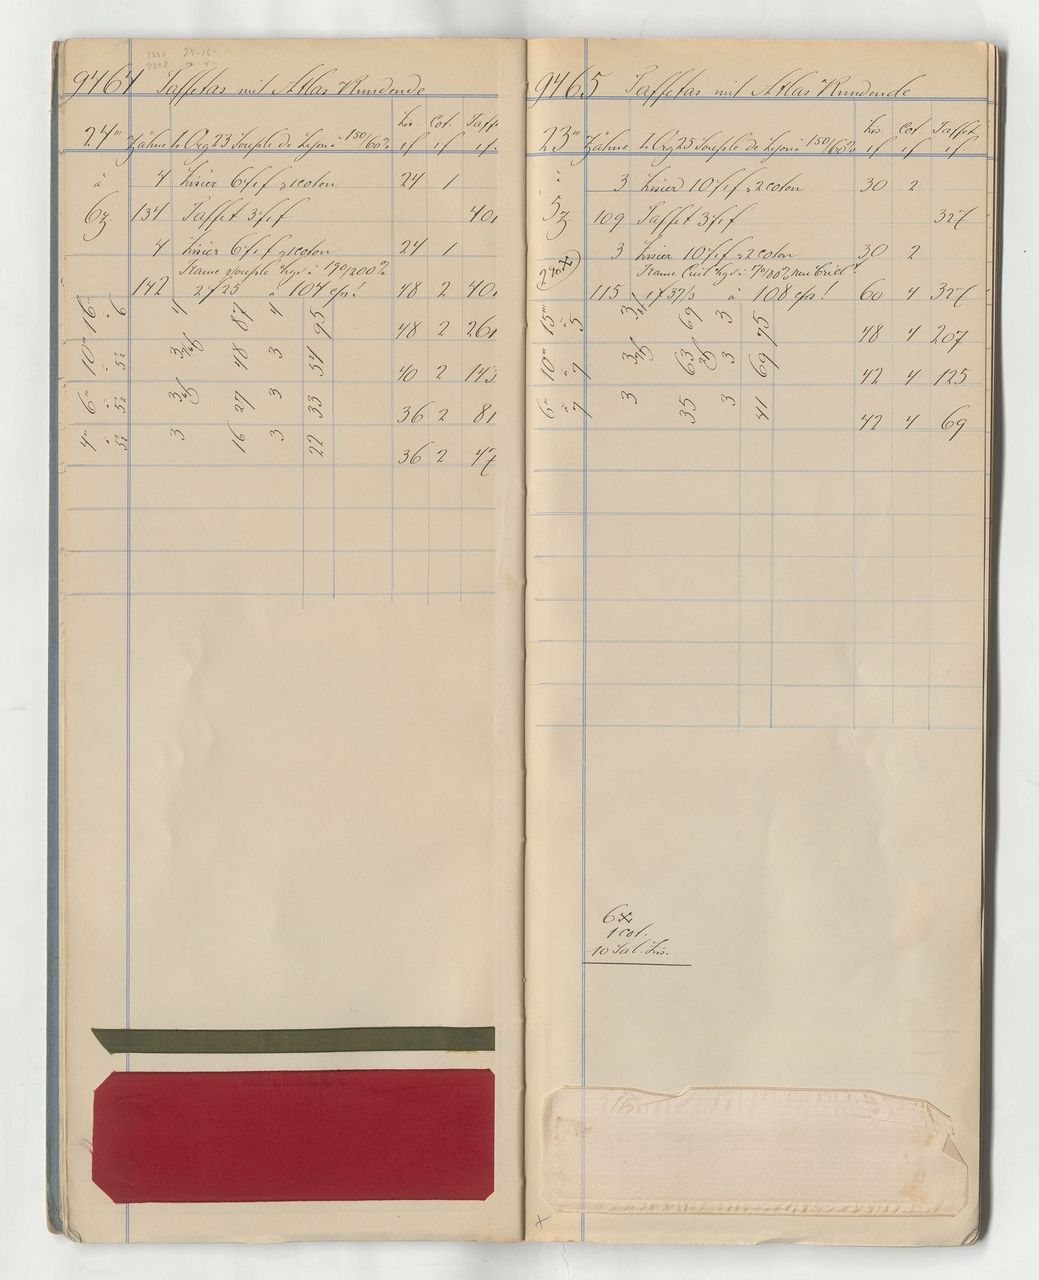 9464 Taffetas mit Atlas
Lis. Cot. Taff
24''' Zähne 1 Org 23 Souple de Lyon à 150/60% 1f 1f 1f
à 4 Lisier 6f 1f 1 coton 24 1
6z. 134 Taffet 3f 1f 40
4 Lisier 6f 1f 1 coton 24 1
Trame Souple à 190/200%
142 2f 25 à 104 chs! 48 2 40
16''' à 6 4 87 4 95 48 2 261
10''' à 5½ 3 48 3 54 40 2 143
6''' à 5½ 3 27 3 33 36 2 81
4''' à 5½ 3 16 3 22 36 2 47
9465 Taffetas mit Atlas
Lis. Cot. Taffet
23''' Zähne 1 Org 25 Souple de Lyon à 150/60% 1f 1f 1f
à 3 Lisier 10f 1f 2 coton 30 2
5z. 109 Taffet 3f 1f 327
3 Lisier 10f 1f 2 coton 30 2
Trame Cuit à 70/80%
115 1f 37/3 à 108 chs! 60 4 327
15''' à 5 3 69 3 75 48 4 207
10''' à 7 3 63 3 69 42 4 125
6''' à 7 3 35 3 41 42 4 69
6x
1 cot.
10 Lis.
x